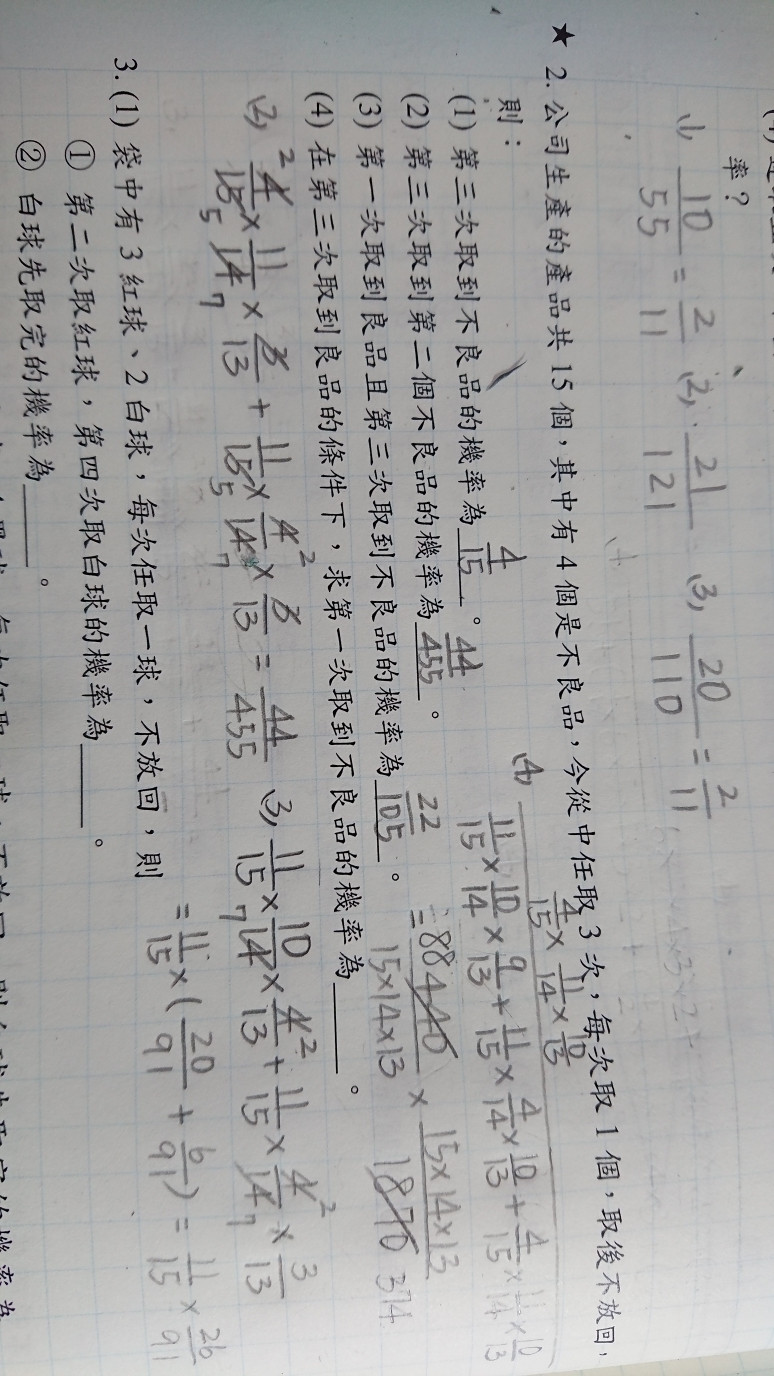 率?
(1) 10/55 = 2/11 (2) 21/121 (3) 20/110 = 2/11
★ 2. 公司生產的產品共 15 個,其中有 4 個是不良品,今從中任取 3 次,每次取 1 個,取後不放回,
則:
(1) 第三次取到不良品的機率為 4/15 。
(2) 第三次取到第二個不良品的機率為 44/455 。
(3) 第一次取到良品且第三次取到不良品的機率為 22/105 。
(4) 在第三次取到良品的條件下,求第一次取到不良品的機率為______。
(4) 4/15 × 11/14 × 10/13
11/15 × 10/14 × 9/13 + 11/15 × 4/14 × 10/13 + 4/15 × 11/14 × 10/13
= 440/15×14×13 × 15×14×13/1870
88 374
(2) 4/15 × 11/14 × 3/13 + 11/15 × 4/14 × 3/13 = 44/455
(3) 11/15 × 10/14 × 4/13 + 11/15 × 4/14 × 3/13
= 11/15 × (20/91 + 6/91) = 11/15 × 26/91
3. (1) 袋中有 3 紅球、2 白球,每次任取一球,不放回,則
① 第二次取紅球,第四次取白球的機率為______。
② 白球先取完的機率為______。